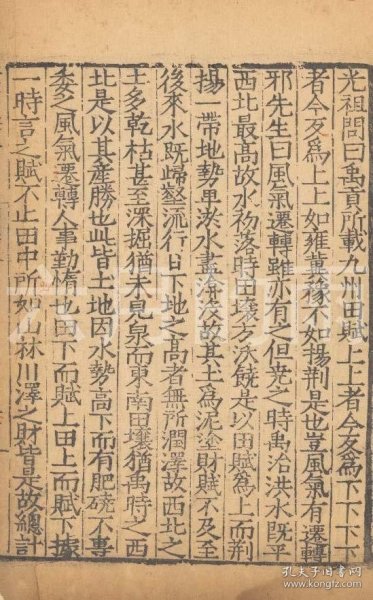 光祖問曰禹貢所載九州田賦上上者今反為下下下下
者今反為上上如雍冀豫不如揚荆是也豈風氣有遷轉
邪先生曰風氣遷轉雖亦有之但堯之時禹治洪水既平
西北最高故水初落時田壤方沃饒是以田賦為上而荆
揚一帶地勢卑洪水盡洛沒故其土為泥塗財賦不及至
後來水既歸壑流行日下地之高者無所潤澤故西北之
土多乾枯甚至深掘猶未見泉而東南田壤猶禹時之西
北是以其產勝也此皆土地因水勢高下而有肥磽不專
委之風氣遷轉人事勤惰也田下而賦上田上而賦下據
一時言之賦不止田中所如山林川澤之財皆是故總計
孔夫子旧书网